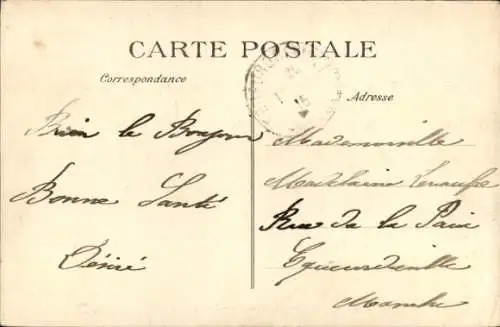 CARTE POSTALE
Correspondance
Adresse
Bien le Bonjour
Bonne Santé
Désiré
Mademoiselle
Madelaine
Rue de la Paix
Equeurdreville
Manche